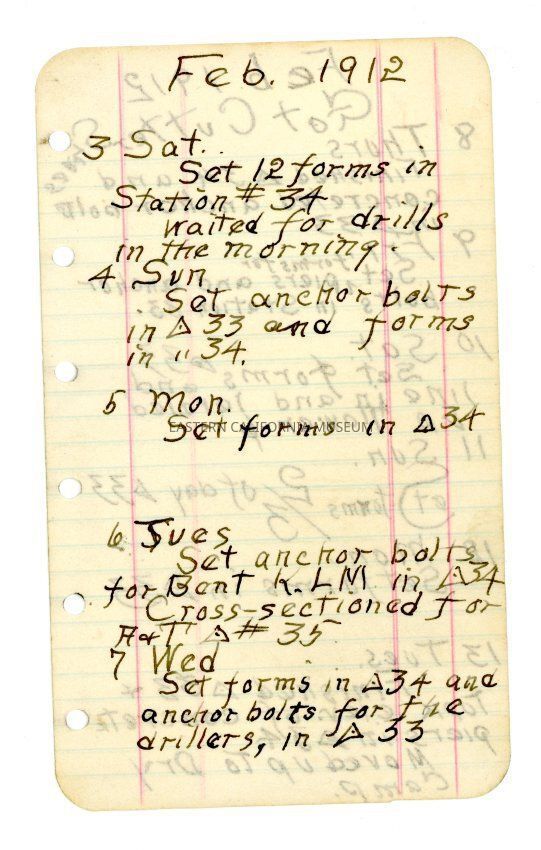 Feb. 1912
3 Sat.
Set 12 forms in
Station # 34
waited for drills
in the morning.
4 Sun
Set anchor bolts
in △ 33 and forms
in " 34.
5 Mon.
Set forms in △34
EASTERN CALIFORNIA MUSEUM
6 Tues
Set anchor bolts
for Bent K.LM in △34
Cross-sectioned for
A&T △ # 35
7 Wed
Set forms in △34 and
anchor bolts for the
drillers, in △ 33